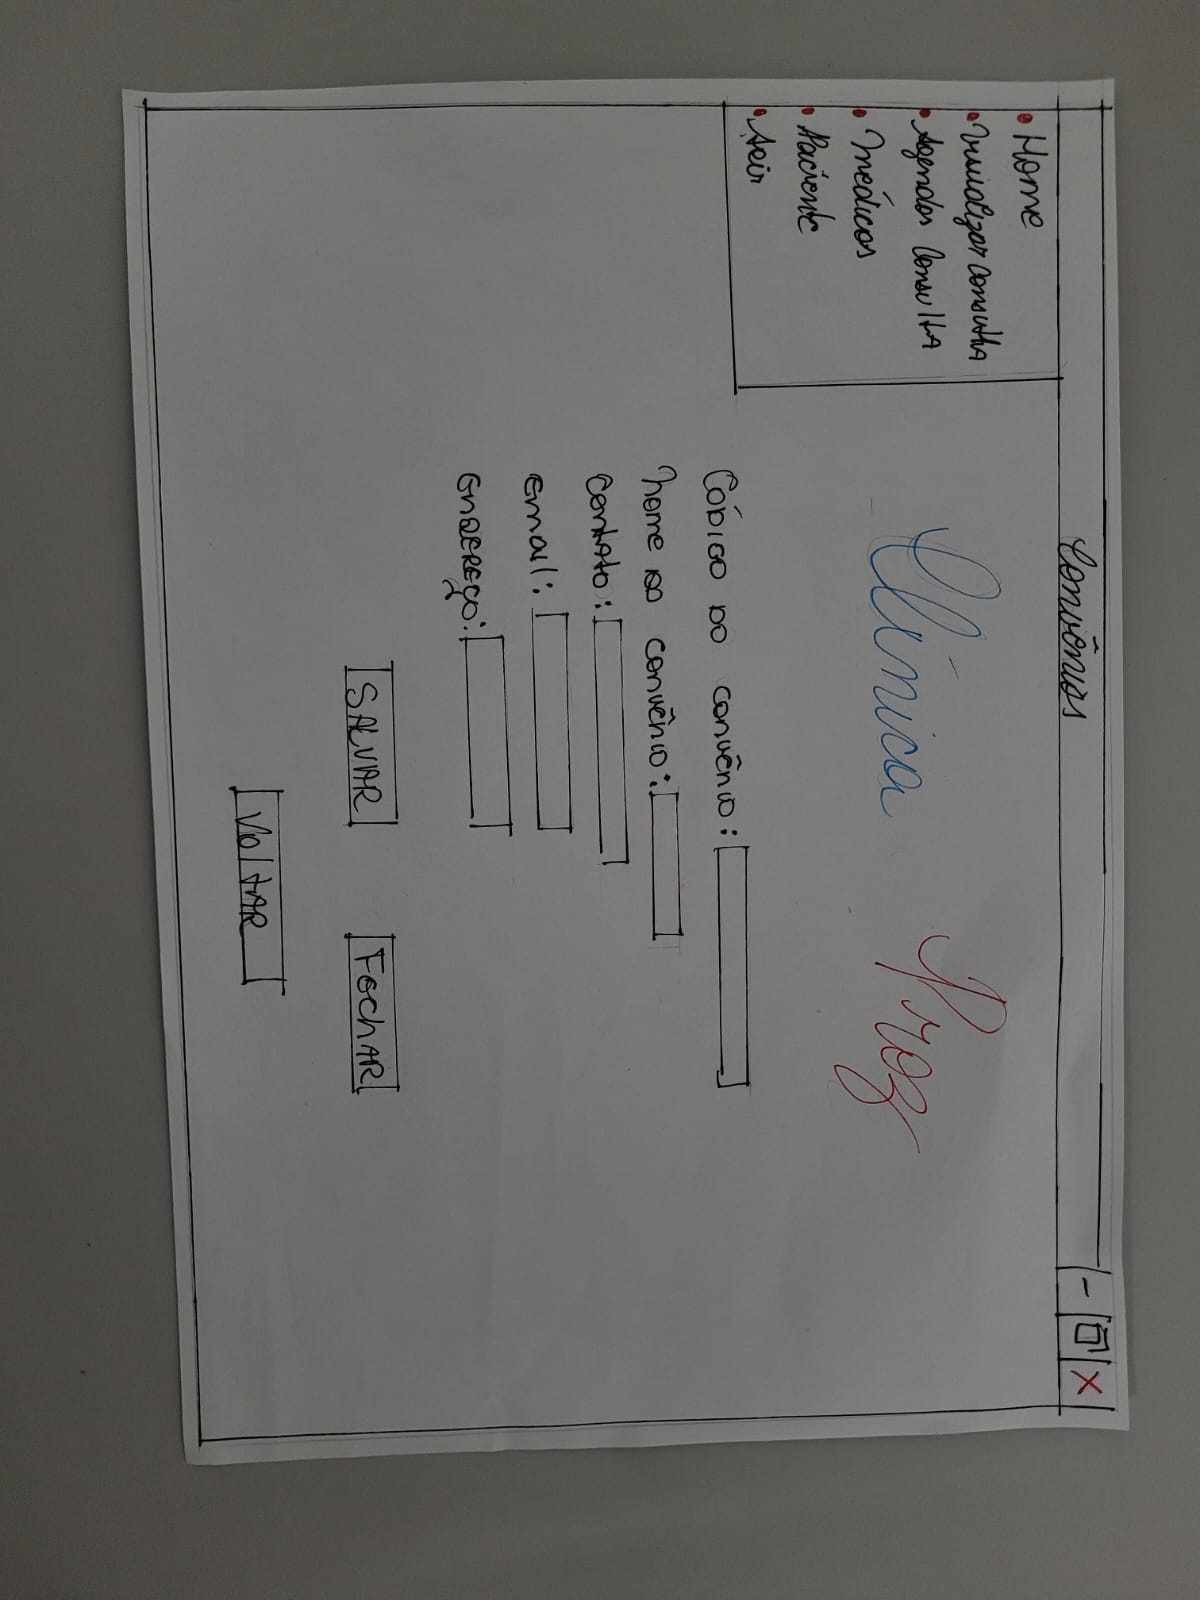 Convênios
- X
• Home
• Visualizar consulta
• Agendar Consulta
• Médicos
• Paciente
• Sair
Clínica Proz
Código do convênio:
Nome do convênio:
Contato:
Email:
Endereço:
SALVAR FechAR
VoltAR